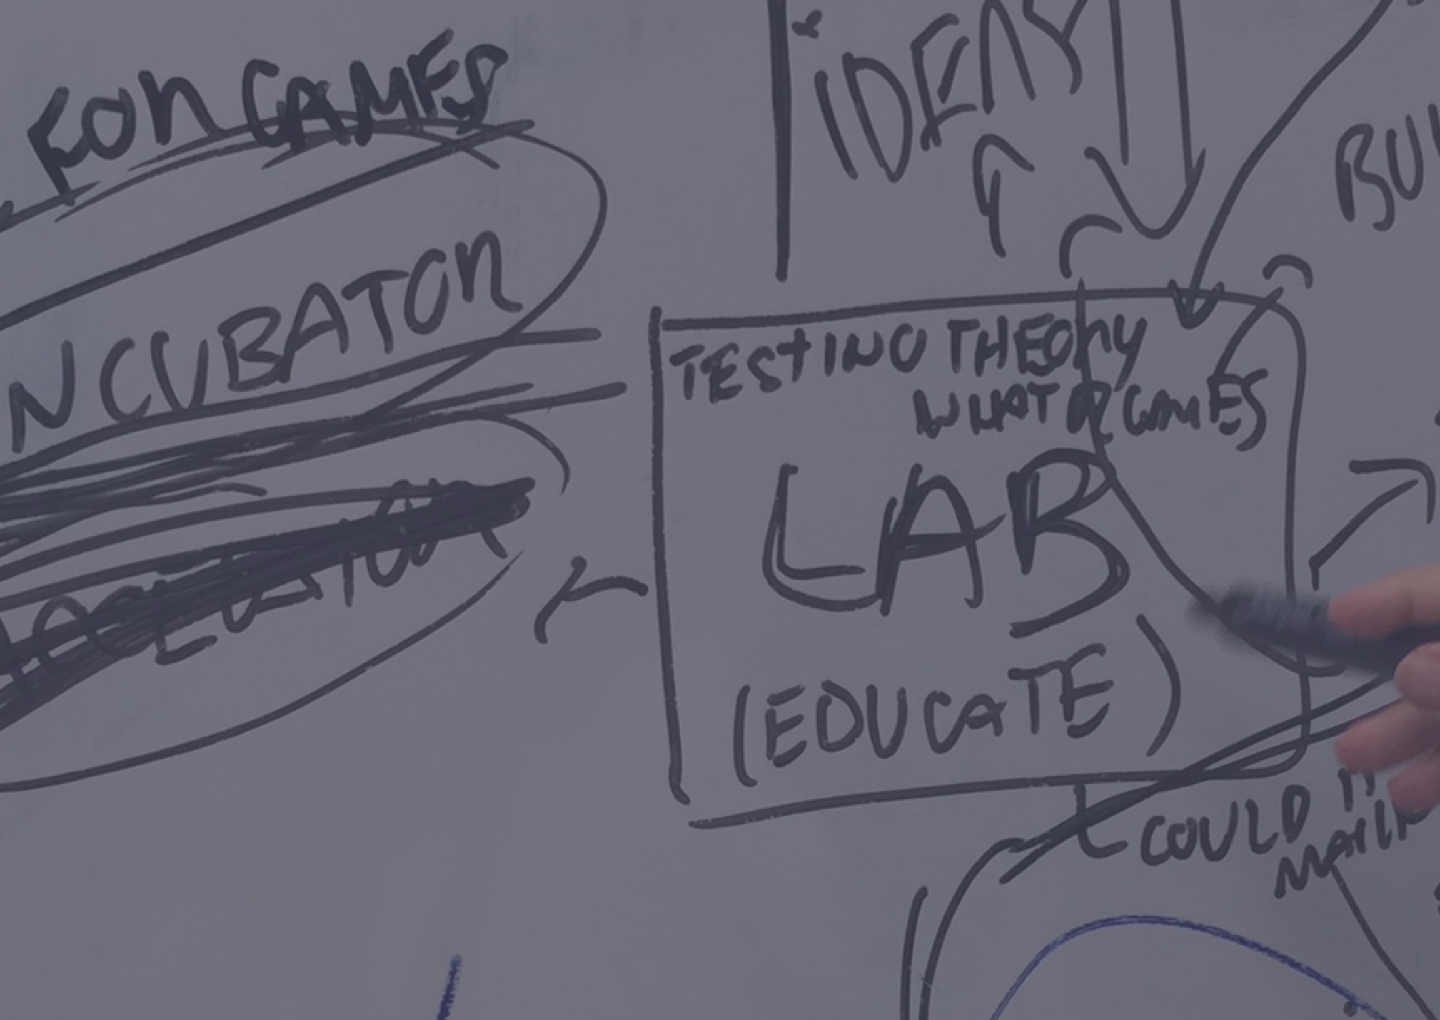 FOR GAMES
NCUBATOR
IDEAS
BU
TESTING THEORY
WHAT R GAMES
LAB
(EDUCATE)
COULD